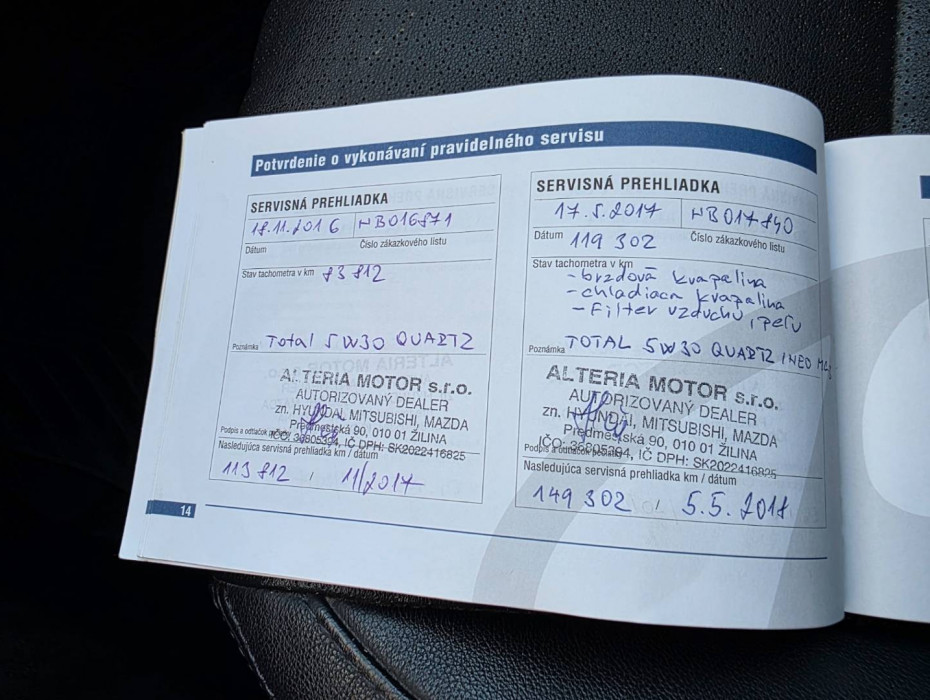 Potvrdenie o vykonávaní pravidelného servisu
SERVISNÁ PREHLIADKA
18.11.2016 HB016871
Dátum Číslo zákazkového listu
Stav tachometra v km 83 812
Poznámka Total 5W30 QUARTZ
ALTERIA MOTOR s.r.o.
AUTORIZOVANÝ DEALER
zn. HYUNDAI, MITSUBISHI, MAZDA
Predmestská 90, 010 01 ŽILINA
Podpis a odtlačok
IČO: 36805394, IČ DPH: SK2022416825
Nasledujúca servisná prehliadka km / dátum
113 812 / 11/2017
SERVISNÁ PREHLIADKA
17.5.2017 HB017840
Dátum 119 302 Číslo zákazkového listu
Stav tachometra v km
- brzdová kvapalina
- chladiaca kvapalina
- Filter vzduchu, peľu
Poznámka TOTAL 5W30 QUARTZ INEO
ALTERIA MOTOR s.r.o.
AUTORIZOVANÝ DEALER
zn. HYUNDAI, MITSUBISHI, MAZDA
Predmestská 90, 010 01 ŽILINA
IČO: 36805394, IČ DPH: SK2022416825
Podpis a odtlačok
Nasledujúca servisná prehliadka km / dátum
149 302 / 5.5.2018
14